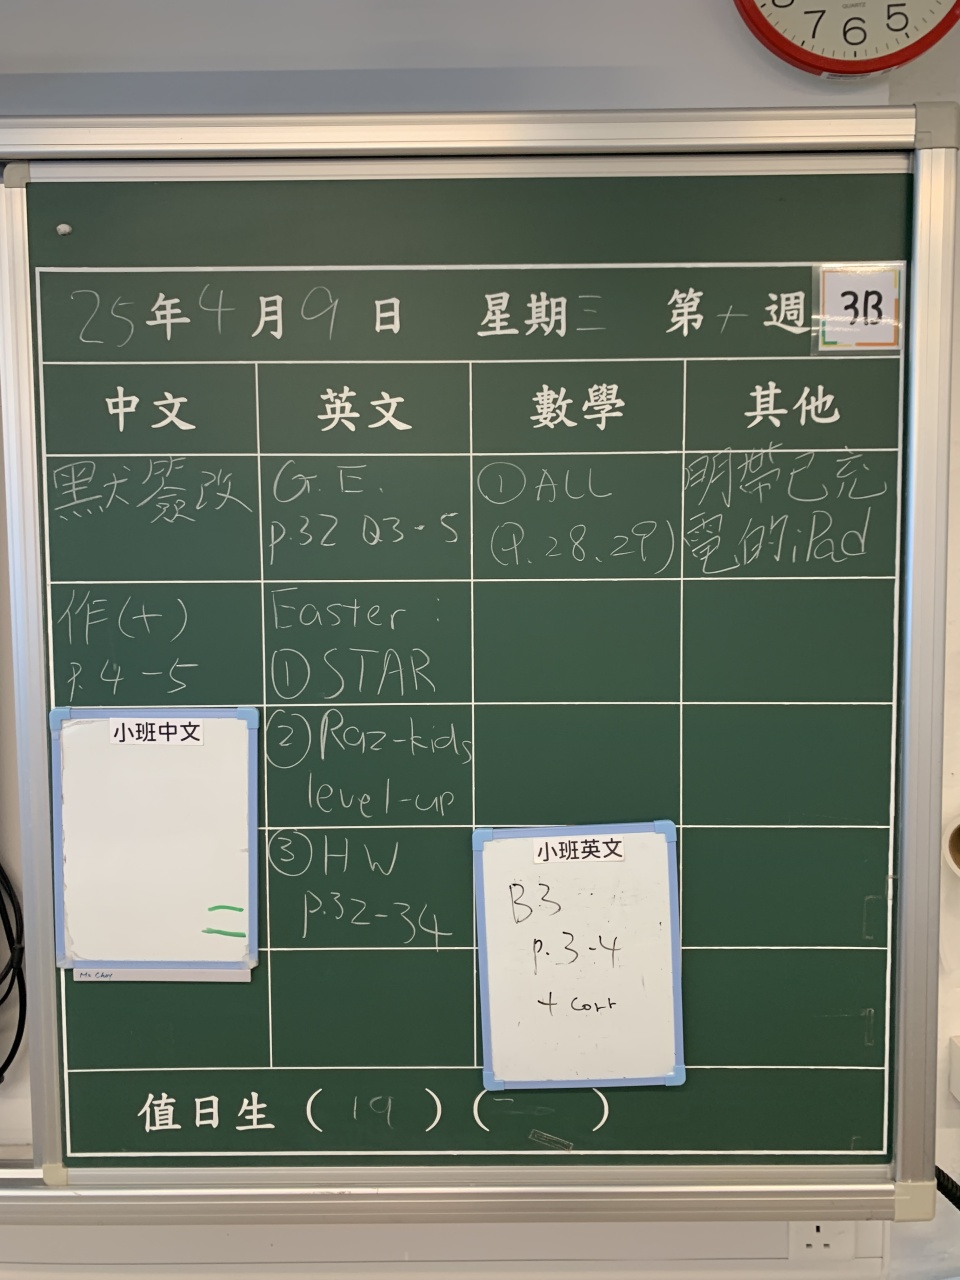 7 6 5
QUARTZ
25年4月9日 星期三 第十週 3B
中文 英文 數學 其他
默簽改
G.E.
p.32 Q3-5
①ALL
(P.28、29)
明帶已充
電的iPad
作(十)
P.4-5
Easter:
①STAR
②Raz-kids
level-up
③HW
p.32-34
小班中文
Ms Choy
小班英文
B3
p.3-4
+ corr
值日生(19)( )